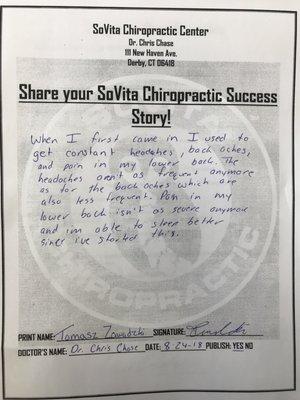 SoVita Chiropractic Center
Dr. Chris Chase
111 New Haven Ave.
Derby, CT 06418
Share your SoVita Chiropractic Success
Story!
When I first came in I used to
get constant headaches, back aches,
and pain in my lower back. The
headaches aren't as frequent anymore
as for the back aches which are
also less frequent. Pain in my
lower back isn't as severe anymore
and im able to sleep better
since i've started this.
PRINT NAME: Tomasz Zawadzki SIGNATURE:
DOCTOR'S NAME: Dr. Chris Chase DATE: 8-24-18 PUBLISH: YES NO